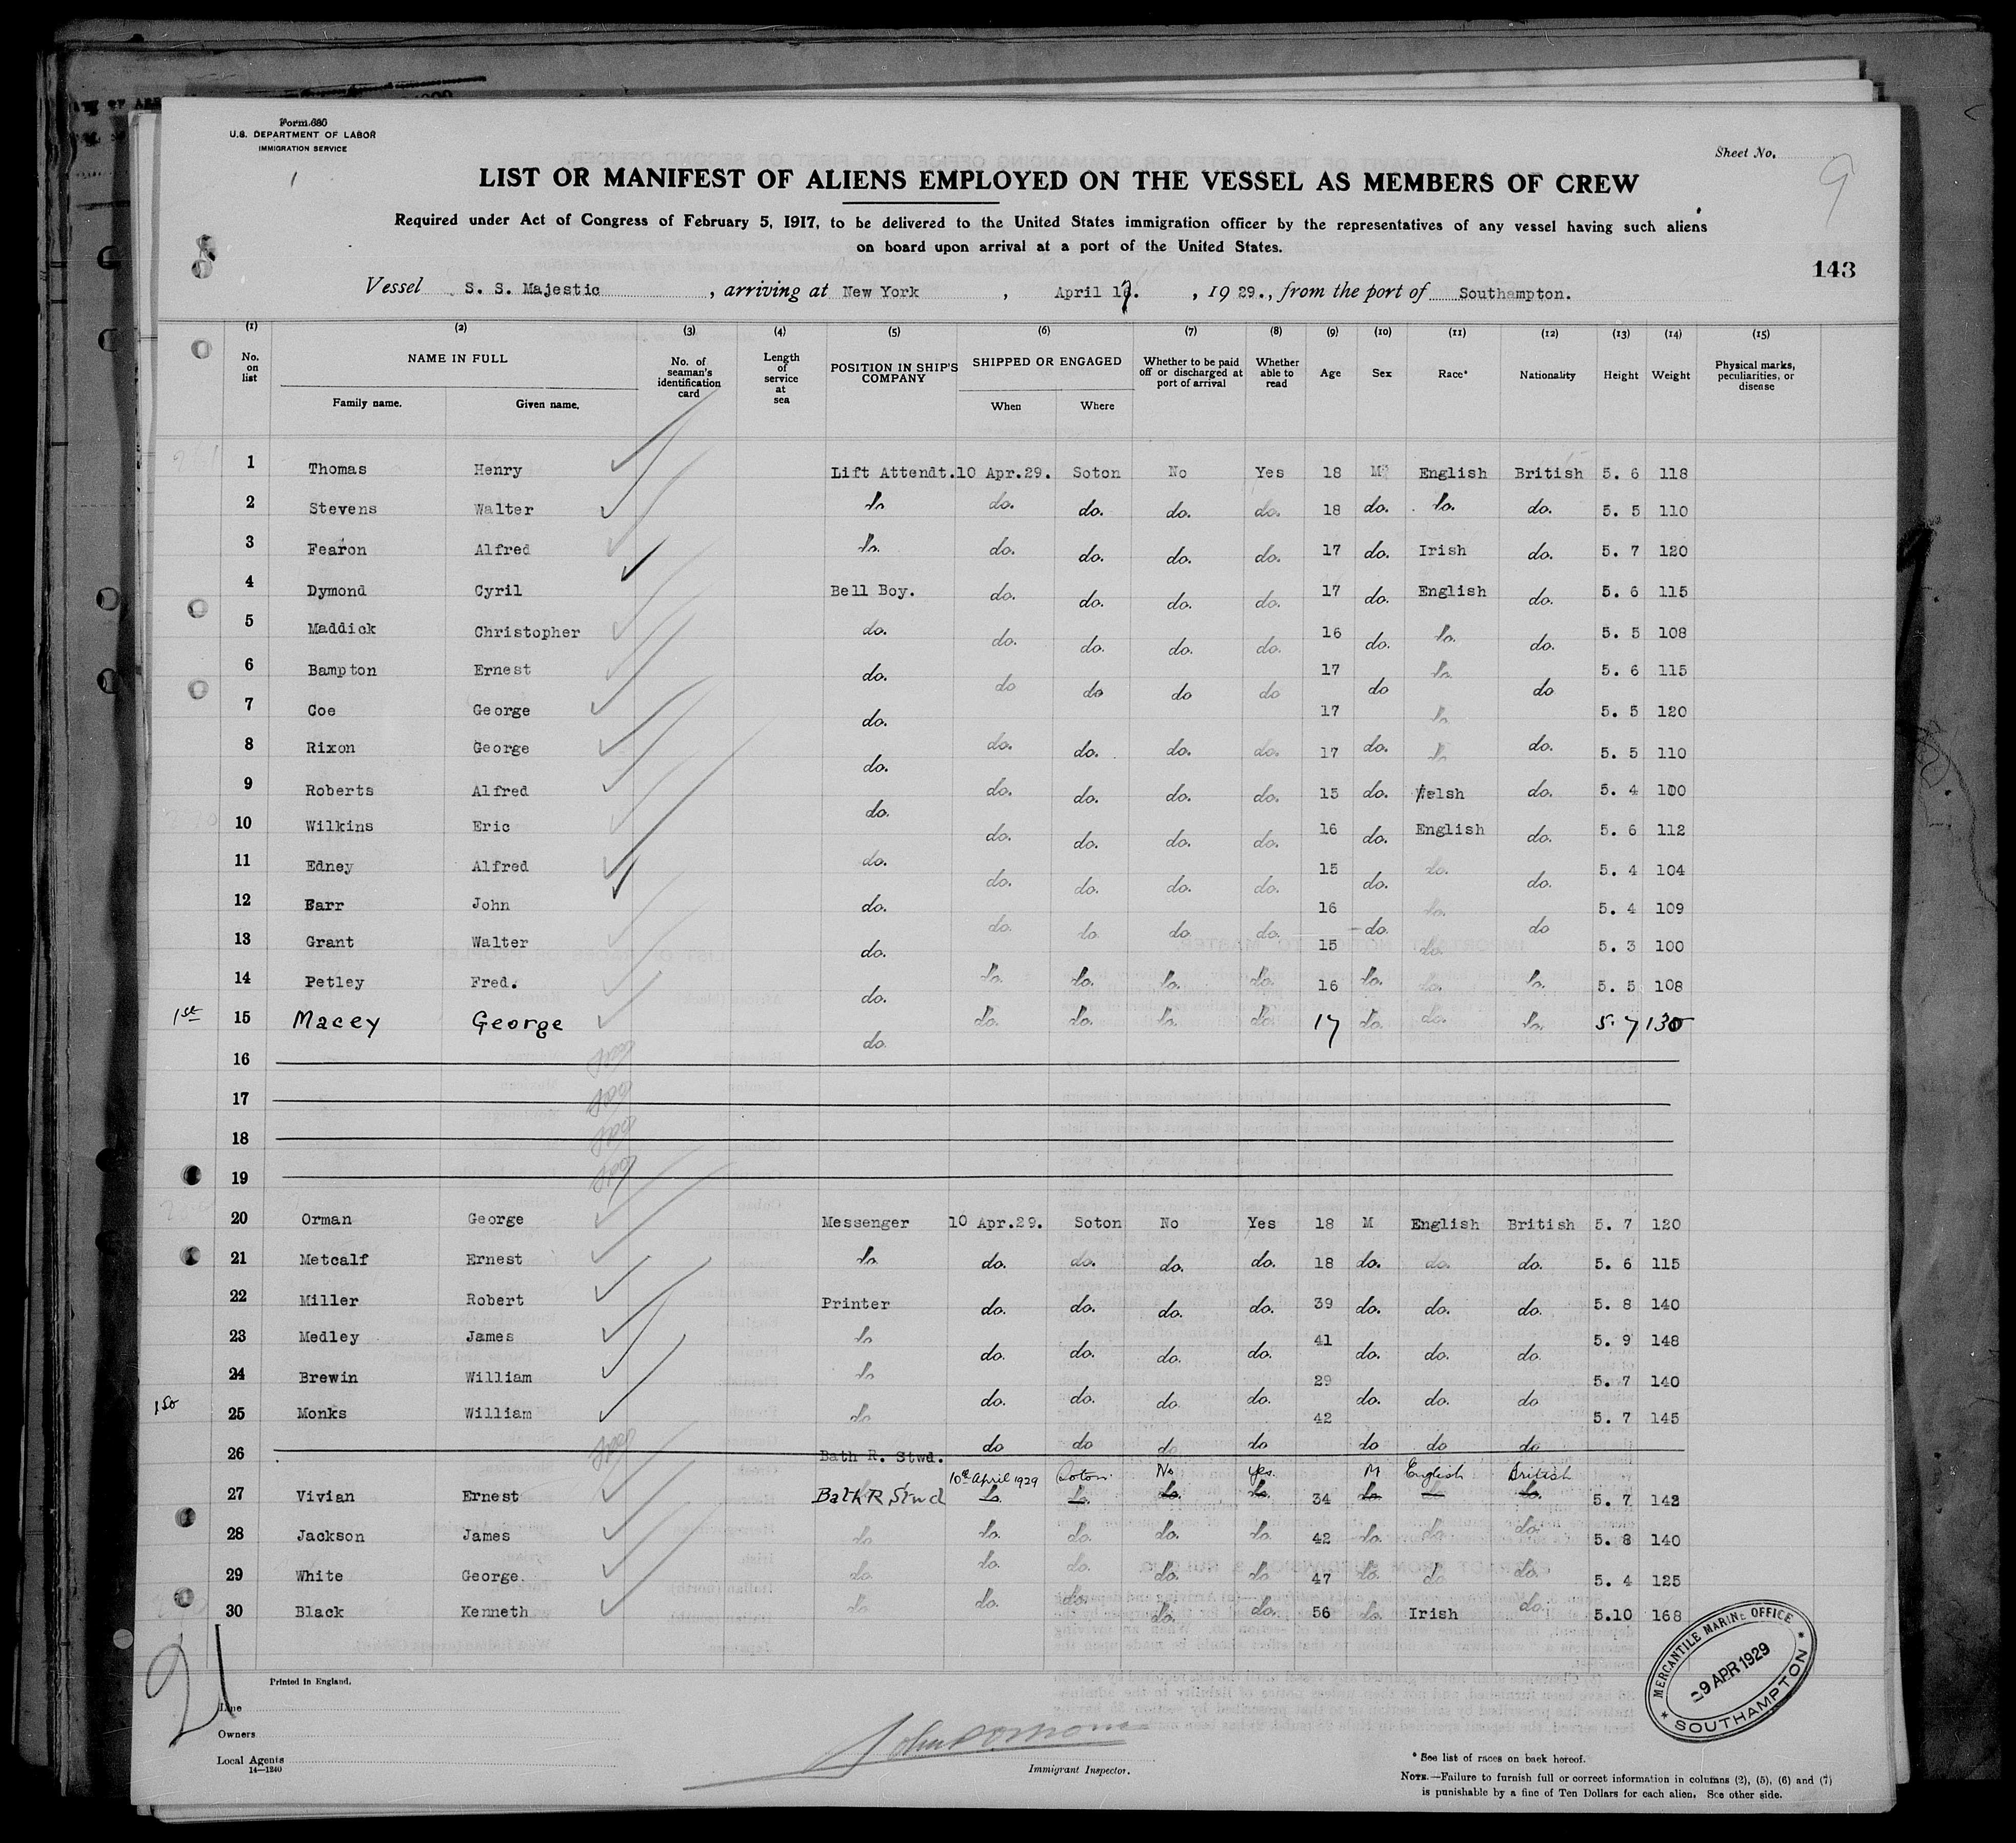 Form 680
U.S. DEPARTMENT OF LABOR
IMMIGRATION SERVICE
Sheet No.
9
LIST OR MANIFEST OF ALIENS EMPLOYED ON THE VESSEL AS MEMBERS OF CREW
Required under Act of Congress of February 5, 1917, to be delivered to the United States immigration officer by the representatives of any vessel having such aliens
on board upon arrival at a port of the United States.
143
Vessel S. S. Majestic , arriving at New York , April 17. , 19 29., from the port of Southampton.
(1) (2) (3) (4) (5) (6) (7) (8) (9) (10) (11) (12) (13) (14) (15)
No. on list NAME IN FULL Family name. Given name. No. of seaman's identification card Length of service at sea POSITION IN SHIP'S COMPANY SHIPPED OR ENGAGED When Where Whether to be paid off or discharged at port of arrival Whether able to read Age Sex Race* Nationality Height Weight Physical marks, peculiarities, or disease
1 Thomas Henry Lift Attendt. 10 Apr.29. Soton No Yes 18 M English British 5. 6 118
2 Stevens Walter do do. do. do. do. 18 do. do. do. 5. 5 110
3 Fearon Alfred do. do. do. do. do. 17 do. Irish do. 5. 7 120
4 Dymond Cyril Bell Boy. do. do. do. do. 17 do. English do. 5. 6 115
5 Maddick Christopher do. do. do. do. do. 16 do. do. do. 5. 5 108
6 Bampton Ernest do. do do do do 17 do do. do 5. 6 115
7 Coe George do. 17 do 5. 5 120
8 Rixon George do. do. do. do. do. 17 do. do do. 5. 5 110
9 Roberts Alfred do. do. do. do. do. 15 do. Welsh do. 5. 4 100
10 Wilkins Eric do. do. do. do. do. 16 do. English do. 5. 6 112
11 Edney Alfred do. do. do. do. do. 15 do. do. do. 5. 4 104
12 Earr John do. do. do do do. 16 do. do. do 5. 4 109
13 Grant Walter do. 15 do. 5. 3 100
14 Petley Fred. do. do. do. do. do. 16 do. do. do. 5. 5 108
1st 15 Macey George do. do. do. do. do. 17 do. do. do. 5. 7 130
16
17
18
19
20 Orman George Messenger 10 Apr.29. Soton No Yes 18 M English British 5. 7 120
21 Metcalf Ernest do do. do. do. do. 18 do. do. do. 5. 6 115
22 Miller Robert Printer do. do. do. do. 39 do. do. do. 5. 8 140
23 Medley James do do. do. do. do. 41 do. do. do. 5. 9 148
24 Brewin William do do. do. do. do. 29 do. do. do 5. 7 140
25 Monks William do do do do do 42 do do do 5. 7 145
26 Bath R. Stwd.
10th April 1929 Soton. No yes. M English British
27 Vivian Ernest Bath R Stwd do. do. do. do. 34 do do do. 5. 7 142
28 Jackson James do do. do. do. do. 42 do. do do. 5. 8 140
29 White George. do. do. do. do. do 47 do. do do. 5. 4 125
30 Black Kenneth do. do. do. do. do. 56 do. Irish do. 5.10 168
21
Printed in England.
Line
Owners
Local Agents
14—1240
Immigrant Inspector.
MERCANTILE MARINE OFFICE
9 APR 1929
* SOUTHAMPTON *
* See list of races on back hereof.
NOTE.—Failure to furnish full or correct information in columns (2), (5), (6) and (7)
is punishable by a fine of Ten Dollars for each alien. See other side.